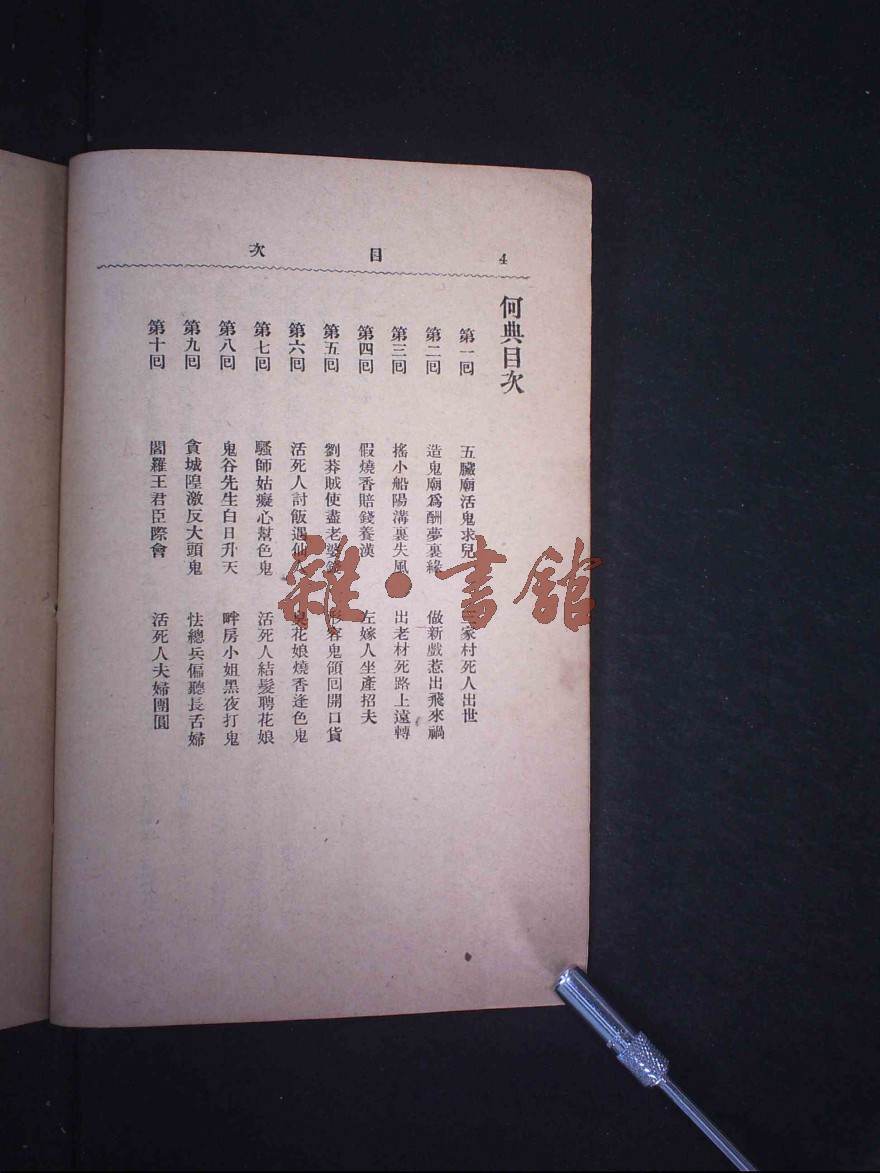 目次
4
何典目次
第一回 五臟廟活鬼求兒 三家村死人出世
第二回 造鬼廟為酬夢裏緣 做新戲惹出飛來禍
第三回 搖小船陽溝裏失風 出老材死路上遠轉
第四回 假燒香賠錢養漢 左嫁人坐產招夫
第五回 劉莽賊使盡老婆錢 形容鬼領回開口貨
第六回 活死人討飯遇仙人 臭花娘燒香逢色鬼
第七回 騷師姑癡心幫色鬼 活死人結髮聘花娘
第八回 鬼谷先生白日升天 畔房小姐黑夜打鬼
第九回 貪城隍激反大頭鬼 怯總兵偏聽長舌婦
第十回 閻羅王君臣際會 活死人夫婦團圓
雜·書館